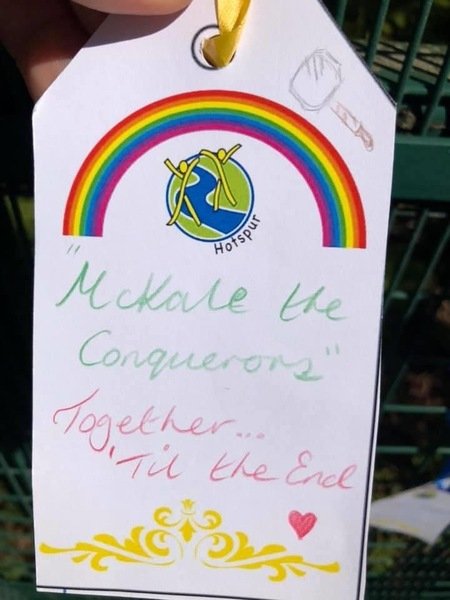 Hotspur
"McKale the
Conquerors"
Together...
'Til the End